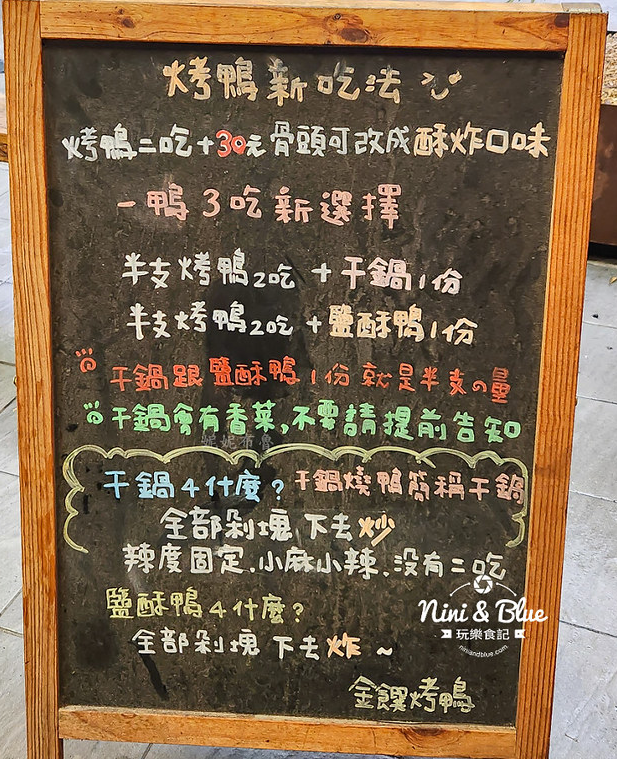 烤鴨新吃法
烤鴨二吃+30元骨頭可改成酥炸口味
一鴨3吃新選擇
半支烤鴨2吃+干鍋1份
半支烤鴨2吃+鹽酥鴨1份
干鍋跟鹽酥鴨1份就是半支の量
干鍋會有香菜,不要請提前告知
妮妮布魯
干鍋4什麼?干鍋燒鴨簡稱干鍋
全部剁塊下去炒
辣度固定.小麻小辣.没有二吃
鹽酥鴨4什麼?
全部剁塊下去炸~
金饌烤鴨
Nini & Blue
玩樂食記
niniandblue.com